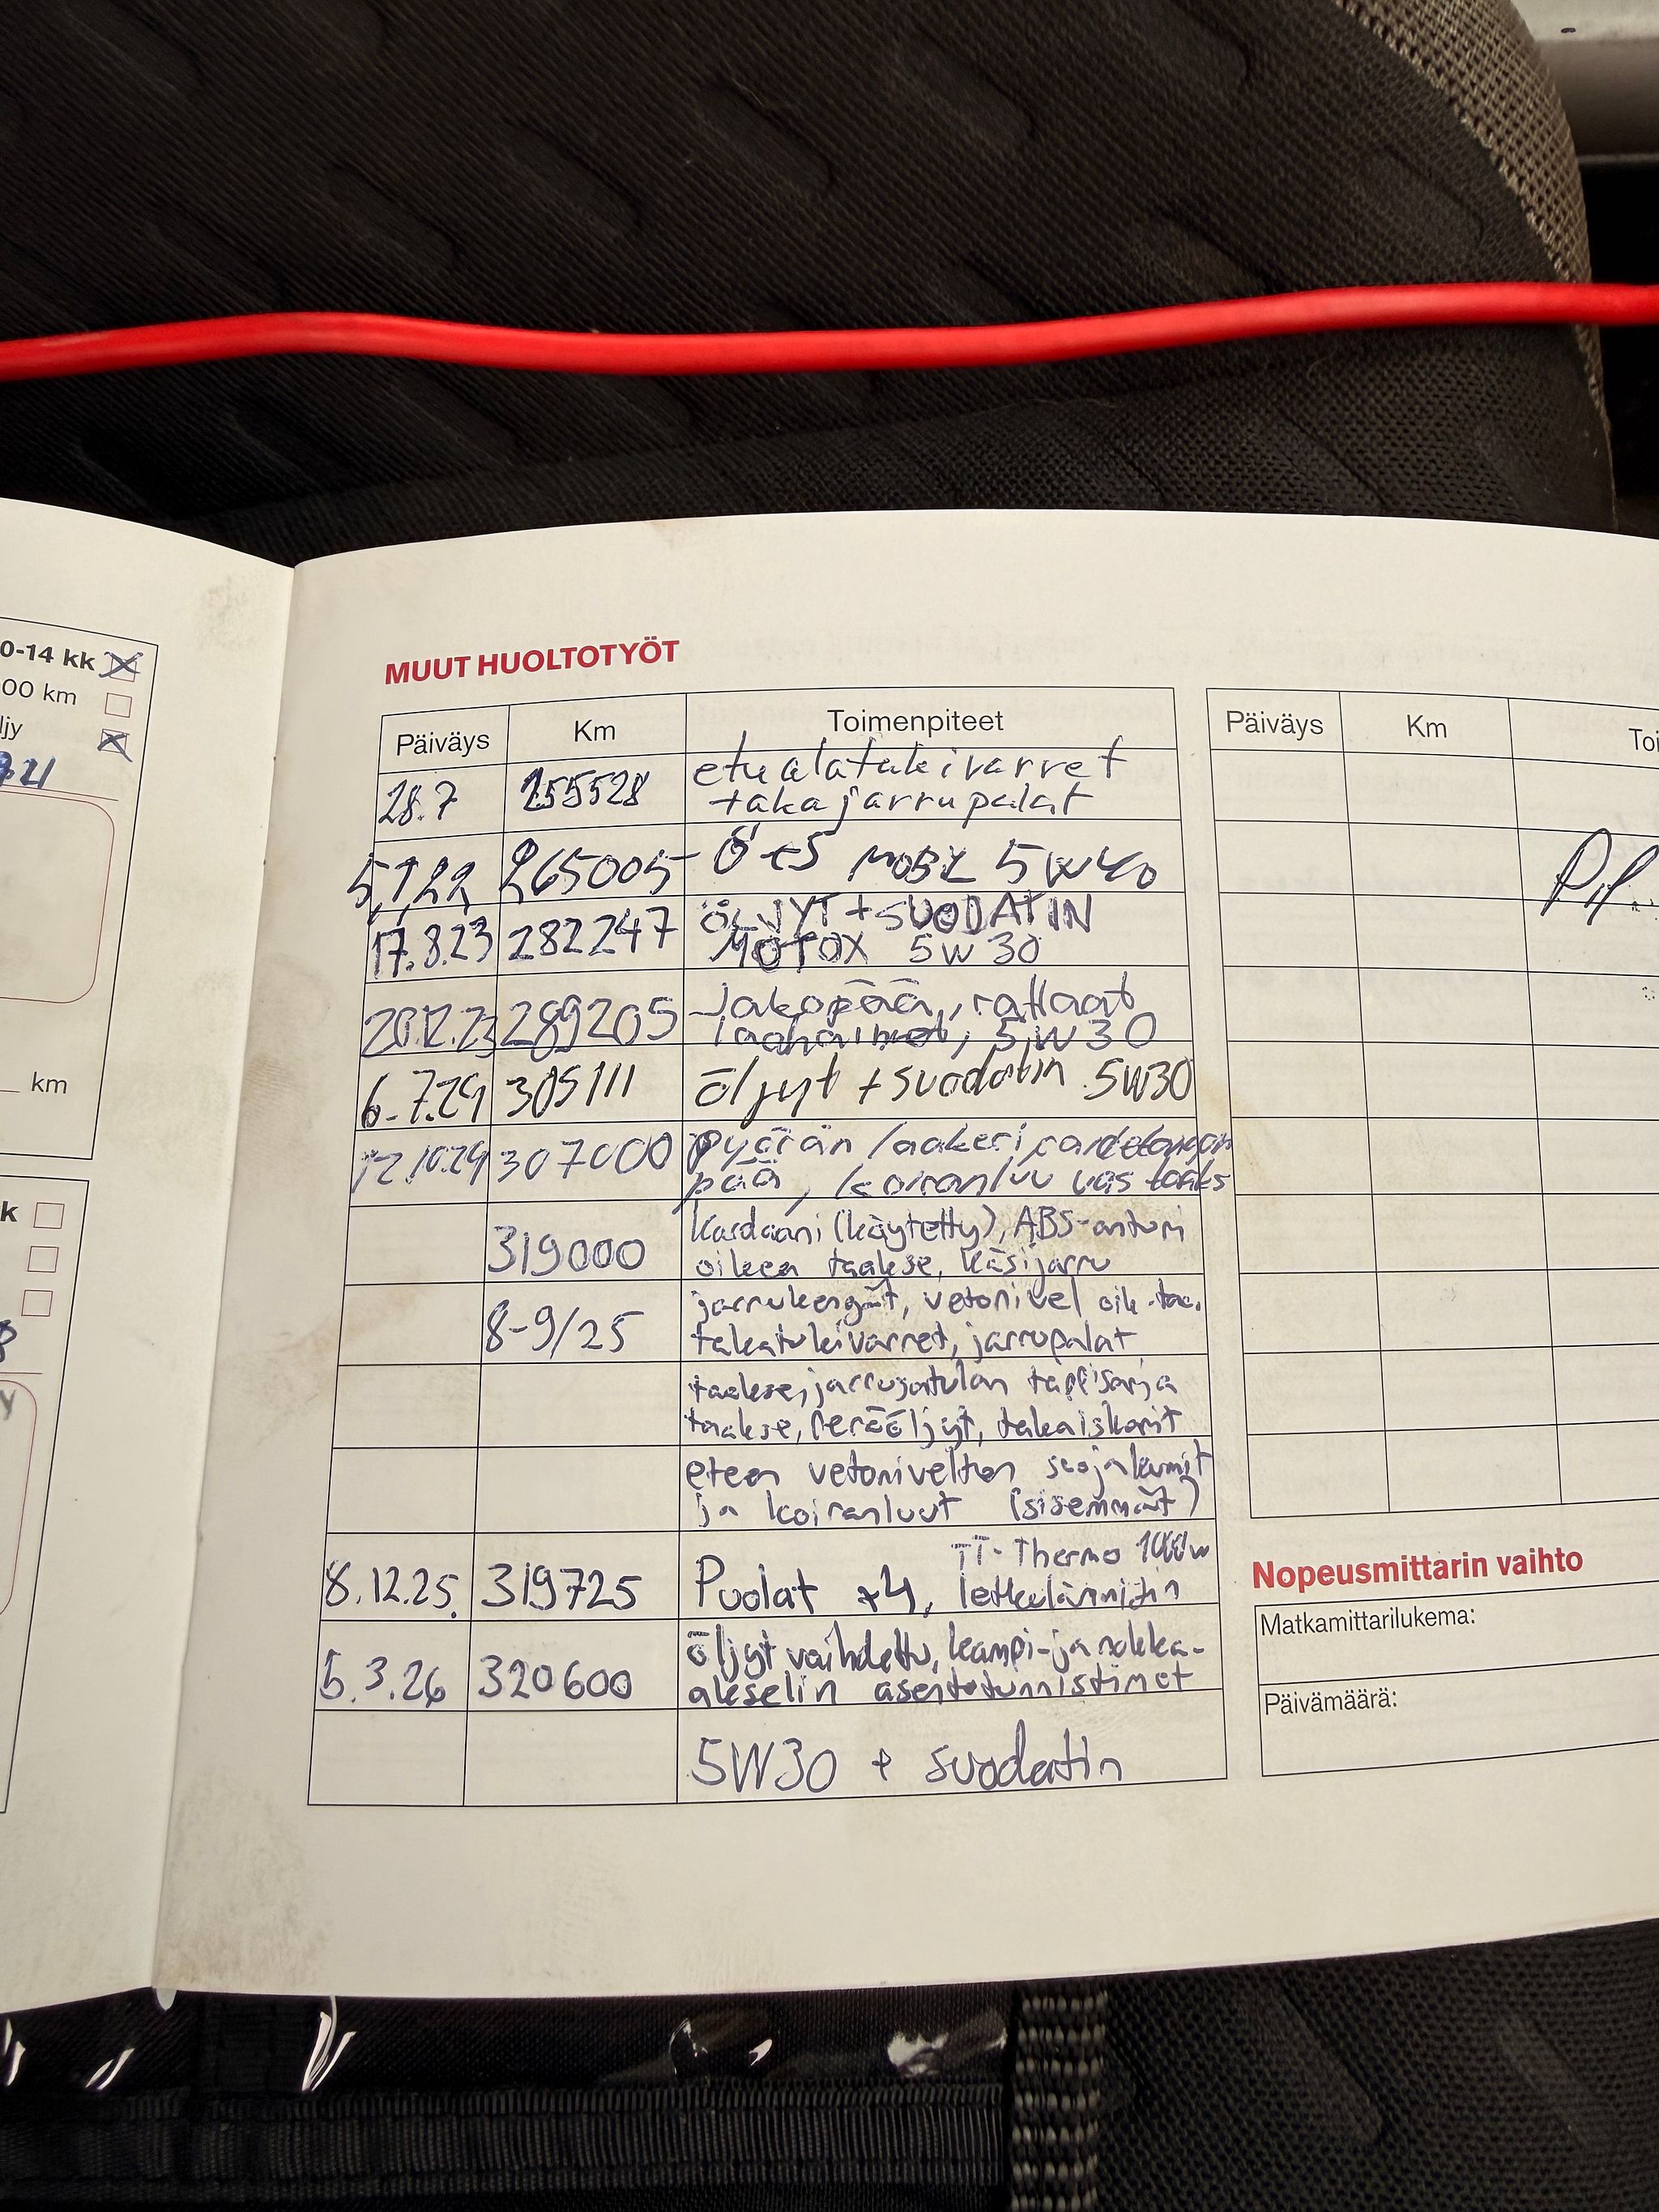 0-14 kk
00 km
ljy
km
k
y
MUUT HUOLTOTYÖT
Päiväys Km Toimenpiteet
28.7 255528 etu alatukivarret
takajarrupalat
5,1,22 265005 Ö+S MOBIL 5W40
17.8.23 282247 ÖLJYT + SUODATIN
MOTOX 5W30
20.12.23 289205 Jakopää, rattaat
5W30
6.7.24 305111 öljyt + suodatin 5W30
12.10.24 307000 pyörän laakeri,
pää, koiranluu vas taaks
319000 Kardaani (käytetty), ABS-anturi
oikea taakse, käsijarru
8-9/25 jarrukengät, vetonivel oik. taa,
takatukivarret, jarrupalat
taakse, jarrusatulan tappisarja
taakse, Peräöljyt, takaiskarit
eteen vetonivelten suojakumit
ja koiranluut (sisemmät)
TT-Thermo 1000w
8.12.25. 319725 Puolat x4, letkulämmitin
5.3.26 320600 öljyt vaihdettu, kampi- ja nokka-
akselin asentotunnistimet
5W30 + suodatin
Päiväys Km Toi
Nopeusmittarin vaihto
Matkamittarilukema:
Päivämäärä: